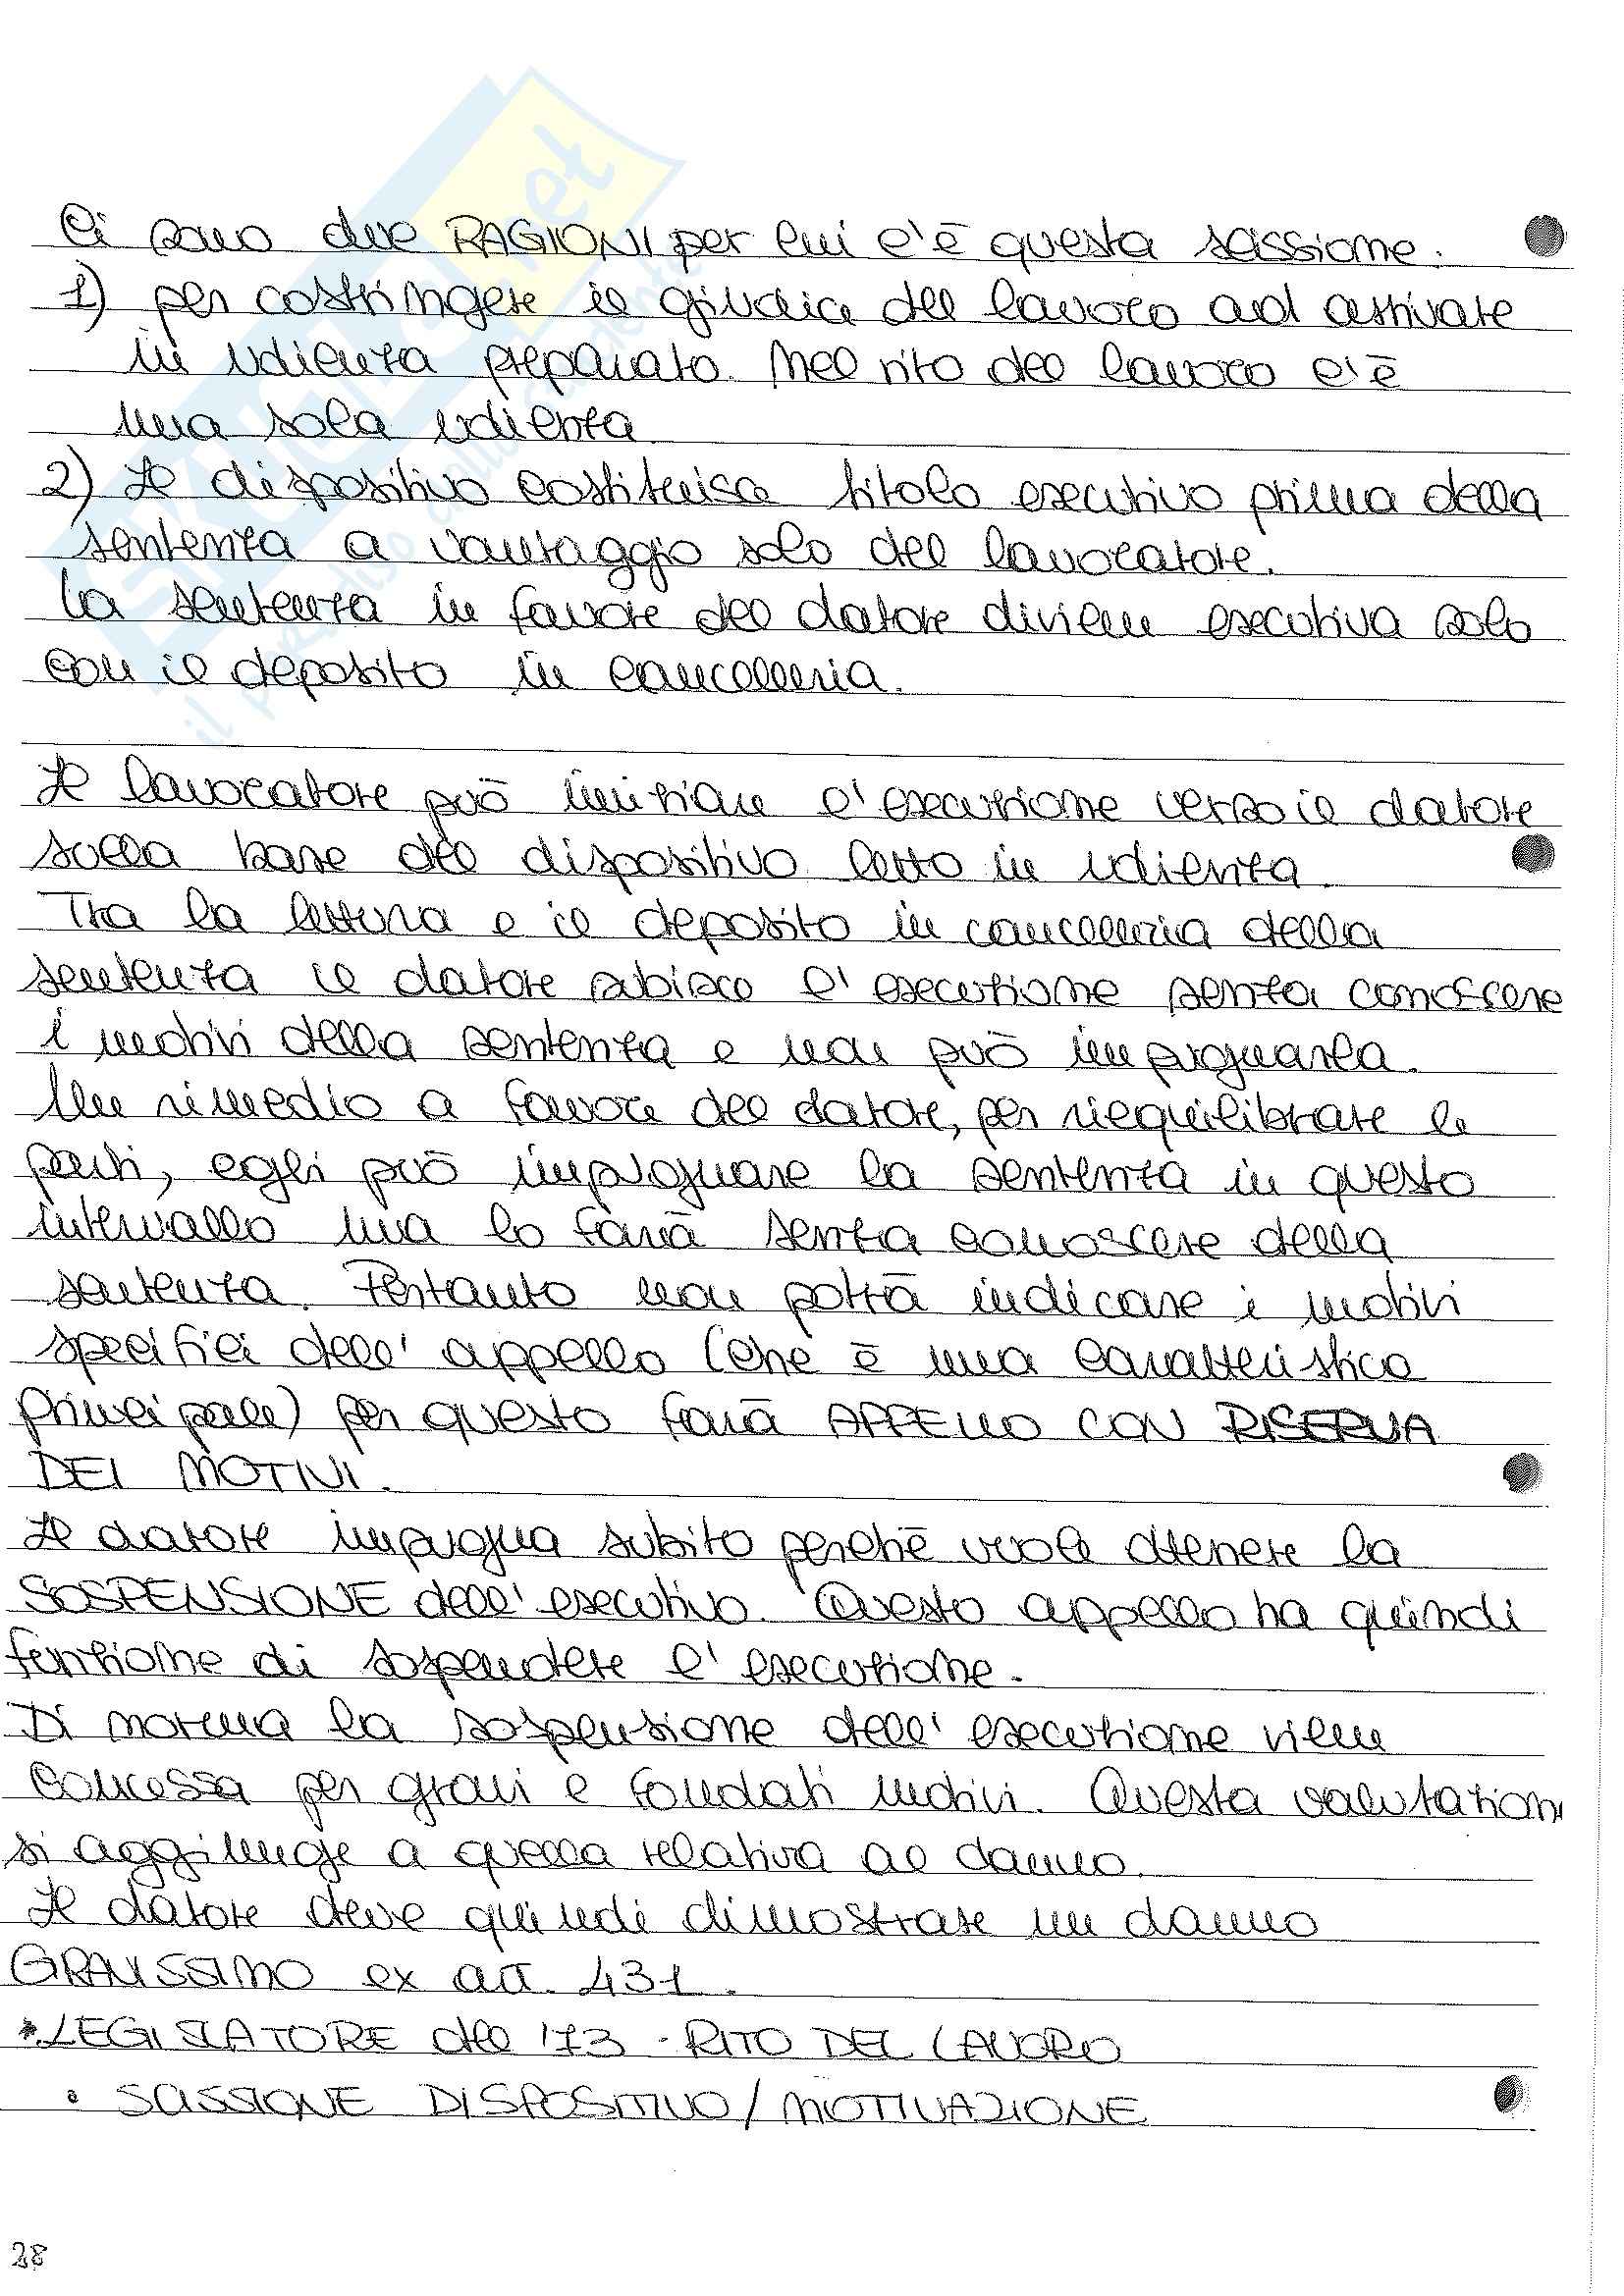 Ci sono due RAGIONI per cui c'è questa scissione:
1) per costringere il giudice del lavoro ad arrivare
in udienza preparato. Nel rito del lavoro c'è
una sola udienza
2) Il dispositivo costituisce titolo esecutivo prima della
sentenza a vantaggio solo del lavoratore.
La sentenza in favore del datore diviene esecutiva solo
con il deposito in cancelleria.
Il lavoratore può iniziare l'esecuzione verso il datore
sulla base del dispositivo letto in udienza.
Tra la lettura e il deposito in cancelleria della
sentenza il datore subisce l'esecuzione senza conoscere
i motivi della sentenza e non può impugnarla.
Un rimedio a favore del datore, per riequilibrare le
parti, egli può impugnare la sentenza in questo
intervallo ma lo farà senza conoscere della
sentenza. Pertanto non potrà indicare i motivi
specifici dell'appello (che è una caratteristica
principale) per questo farà APPELLO CON RISERVA
DEI MOTIVI.
Il datore impugna subito perchè vuole ottenere la
SOSPENSIONE dell'esecutivo. Questo appello ha quindi
funzione di sospendere l'esecuzione.
Di norma la sospensione dell'esecuzione viene
concessa per gravi e fondati motivi. Questa valutazione
si aggiunge a quella relativa al danno.
Il datore deve quindi dimostrare un danno
GRAVISSIMO ex art. 431.
*LEGISLATORE del '73 - RITO DEL LAVORO
• SCISSIONE DISPOSITIVO/MOTIVAZIONE
28